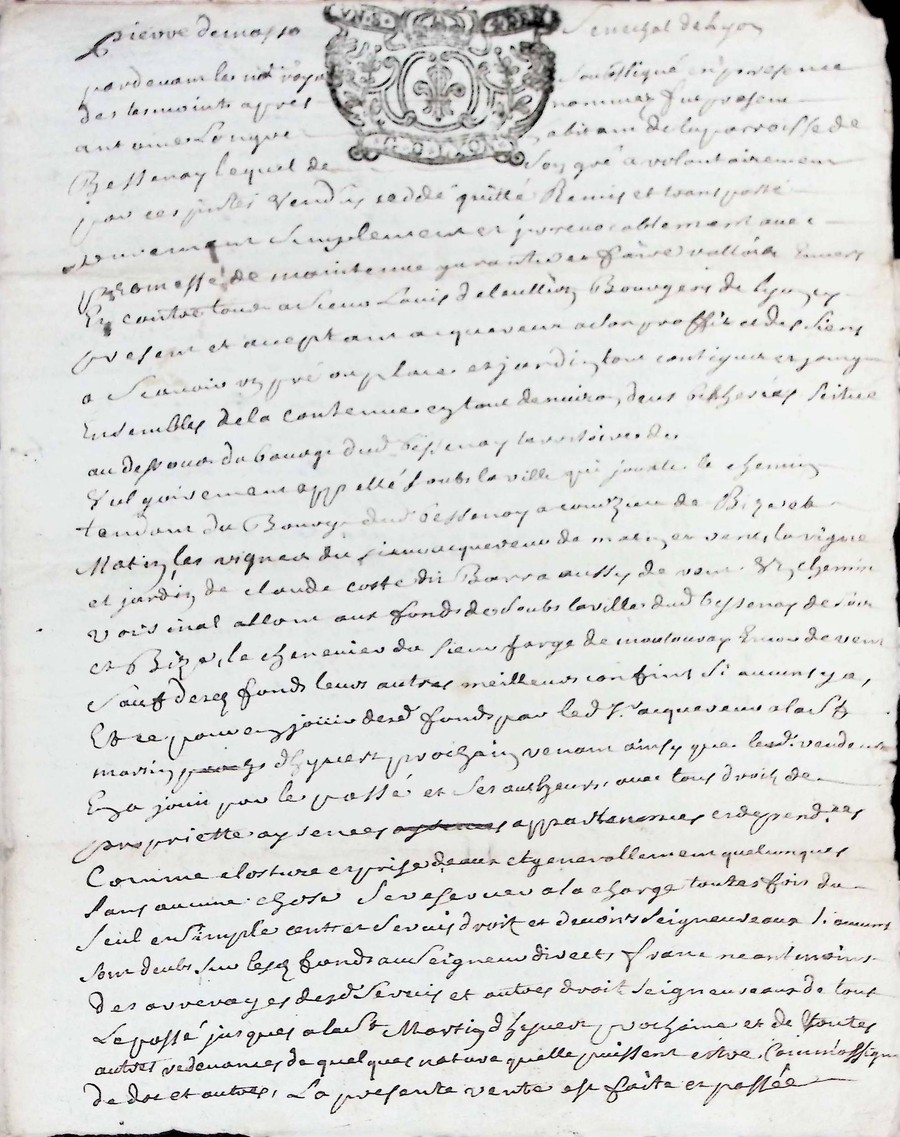 Pierre de masso Senechal de Lyon
pardevant les not royaux Soubsigné en presence
des tesmoints apres nommez fut present
antoine Longue habitant de la parroisse de
Bessenay lequel de Son gré a volontairement
par ces p.ntes Vendus ceddé quitté Remis et transporté
purement Simplement et jrrevocablement avec
promesse de maintenue garantir et faire valloir Envers
Et contre tous a Sieur Louis Bourgeois de Lyon cy
present et aceptant acquereur a Son proffit et des Siens
a Scavoir un pré ou place et jardin tout contigus et joingts
Ensembles de la contenue en tout denviron deux bicherées Scitué
au dessous du bourg dud bessenay territoire de
Vulgairement appellé Soubs la ville qui jouxte le chemin
tendant du Bourg dud bessenay a de Bize et
Matin, les vignes du Sieur acquereur de matin et vent, la vigne
et jardin de claude coste dit Barra aussy de vent Un chemin
voisinal allant aux fonds de Soubs la ville dud bessenay de Soir
et Bize, le chenevier du Sieur farge de Encor de vent
Sauf desd fonds leurs autres meilleurs confins Si aucuns y a,
Et ce pour en jouir desd fonds par led Sr acquereur a la St
martin dhyvert prochain venant ainsy que led. vendeur
En a joui par le passé et Ses autheurs, avec tous droits de
propriette aysences appartenances et depend.ces
Comme closture et prise deaux et generallement quelconques
Sans aucune chose Se reserver a la charge toutes fois du
Seul et Simple cens et Servis droit et devoirs Seigneureaux Si aucuns
Sont deubs Sur lesd fonds au Seigneur direct, franc neantmoins
des arrerages desd Servis et autres droit Seigneureaux de tout
Le passé jusques a la St Martin dhyvert prochaine et de toutes
autres redevances de quelques nature quelle puissent estre,
de dot et autres, La presente vente est faite et passée